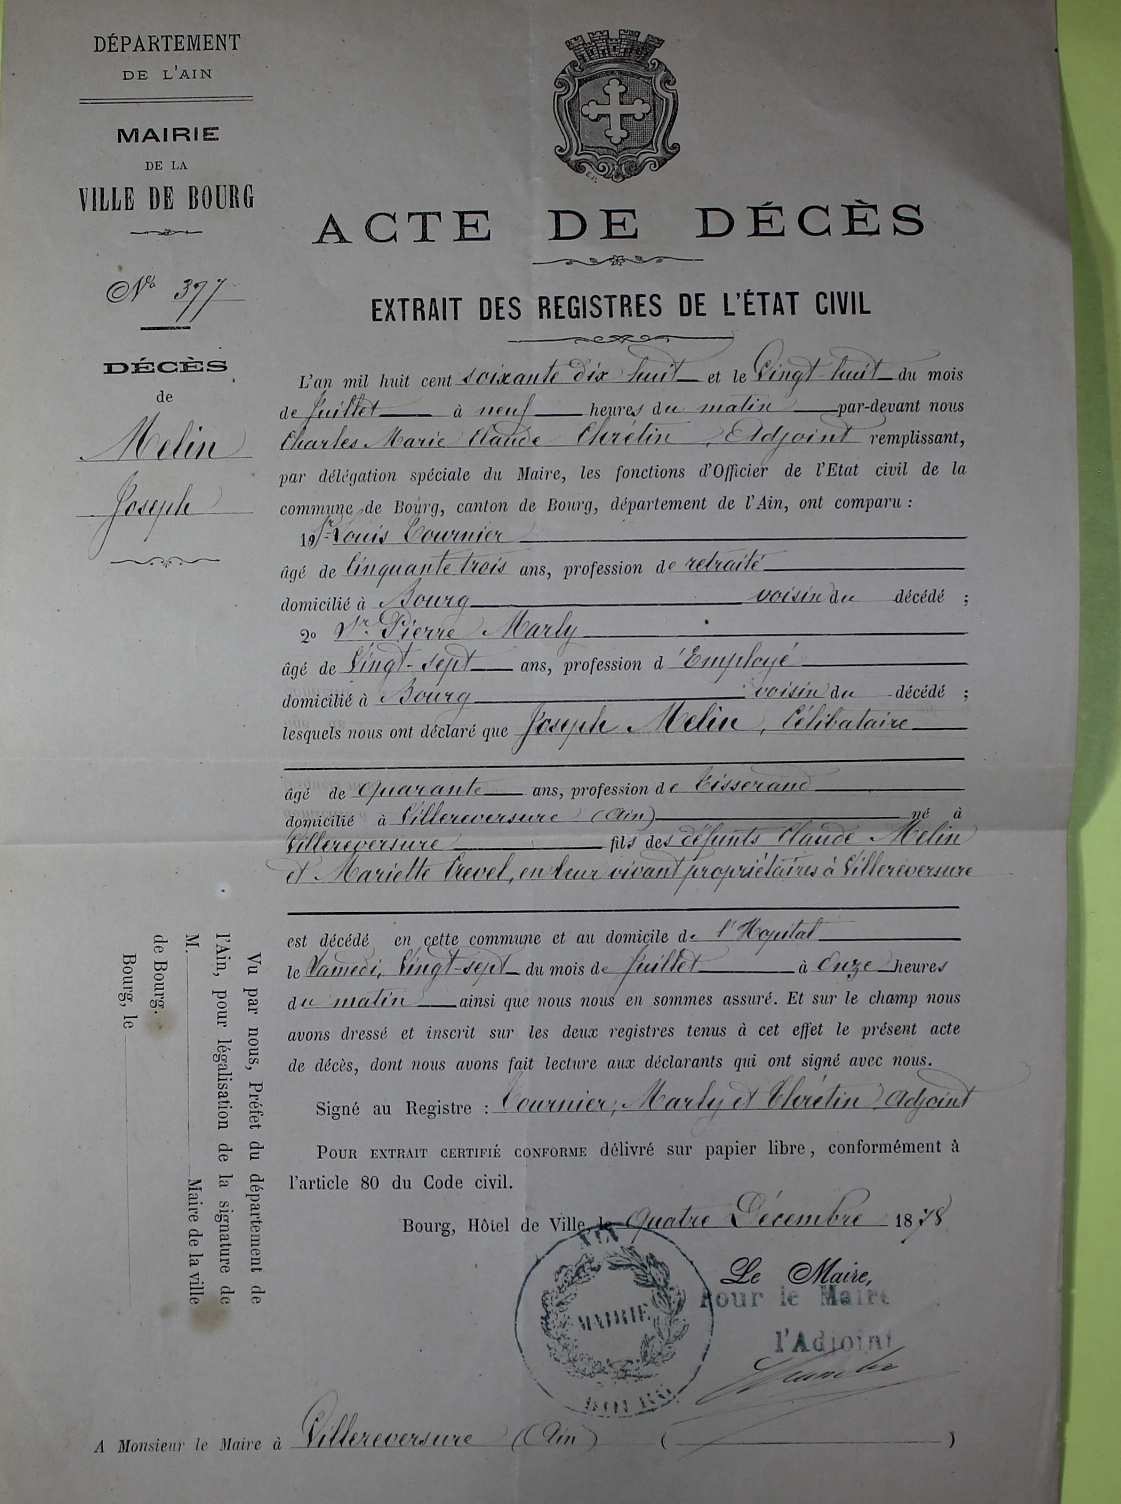 DÉPARTEMENT
DE L'AIN
MAIRIE
DE LA
VILLE DE BOURG
N° 377
DÉCÈS
de
Melin
Joseph
ACTE DE DÉCÈS
EXTRAIT DES REGISTRES DE L'ÉTAT CIVIL
L'an mil huit cent soixante dix huit et le Vingt-huit du mois
de Juillet à neuf heures du matin par-devant nous
Charles Marie Claude Chrétin, Adjoint remplissant,
par délégation spéciale du Maire, les fonctions d'Officier de l'Etat civil de la
commune de Bourg, canton de Bourg, département de l'Ain, ont comparu :
1° Sr Louis Tournier
âgé de Cinquante trois ans, profession de retraité
domicilié à Bourg voisin du décédé ;
2° Sr Pierre Marly
âgé de Vingt-sept ans, profession d'Employé
domicilié à Bourg voisin du décédé ;
lesquels nous ont déclaré que Joseph Melin, Célibataire
âgé de quarante ans, profession de tisserand
domicilié à Villereversure (Ain) né à
Villereversure fils des défunts Claude Melin
et Mariette Trevel, en leur vivant propriétaires à Villereversure
est décédé en cette commune et au domicile de l'Hopital
le Samedi, Vingt-sept du mois de Juillet à Onze heures
du matin ainsi que nous nous en sommes assuré. Et sur le champ nous
avons dressé et inscrit sur les deux registres tenus à cet effet le présent acte
de décès, dont nous avons fait lecture aux déclarants qui ont signé avec nous.
Signé au Registre : Tournier, Marly et Chrétin Adjoint
POUR EXTRAIT CERTIFIÉ CONFORME délivré sur papier libre, conformément à
l'article 80 du Code civil.
Bourg, Hôtel de Ville, le quatre Décembre 1878
Le Maire,
Pour le Maire
l'Adjoint
AIN
MAIRIE
BOURG
Vu par nous, Préfet du département de
l'Ain, pour légalisation de la signature de
M. Maire de la ville
de Bourg.
Bourg, le
A Monsieur le Maire à Villereversure (Ain) ( )